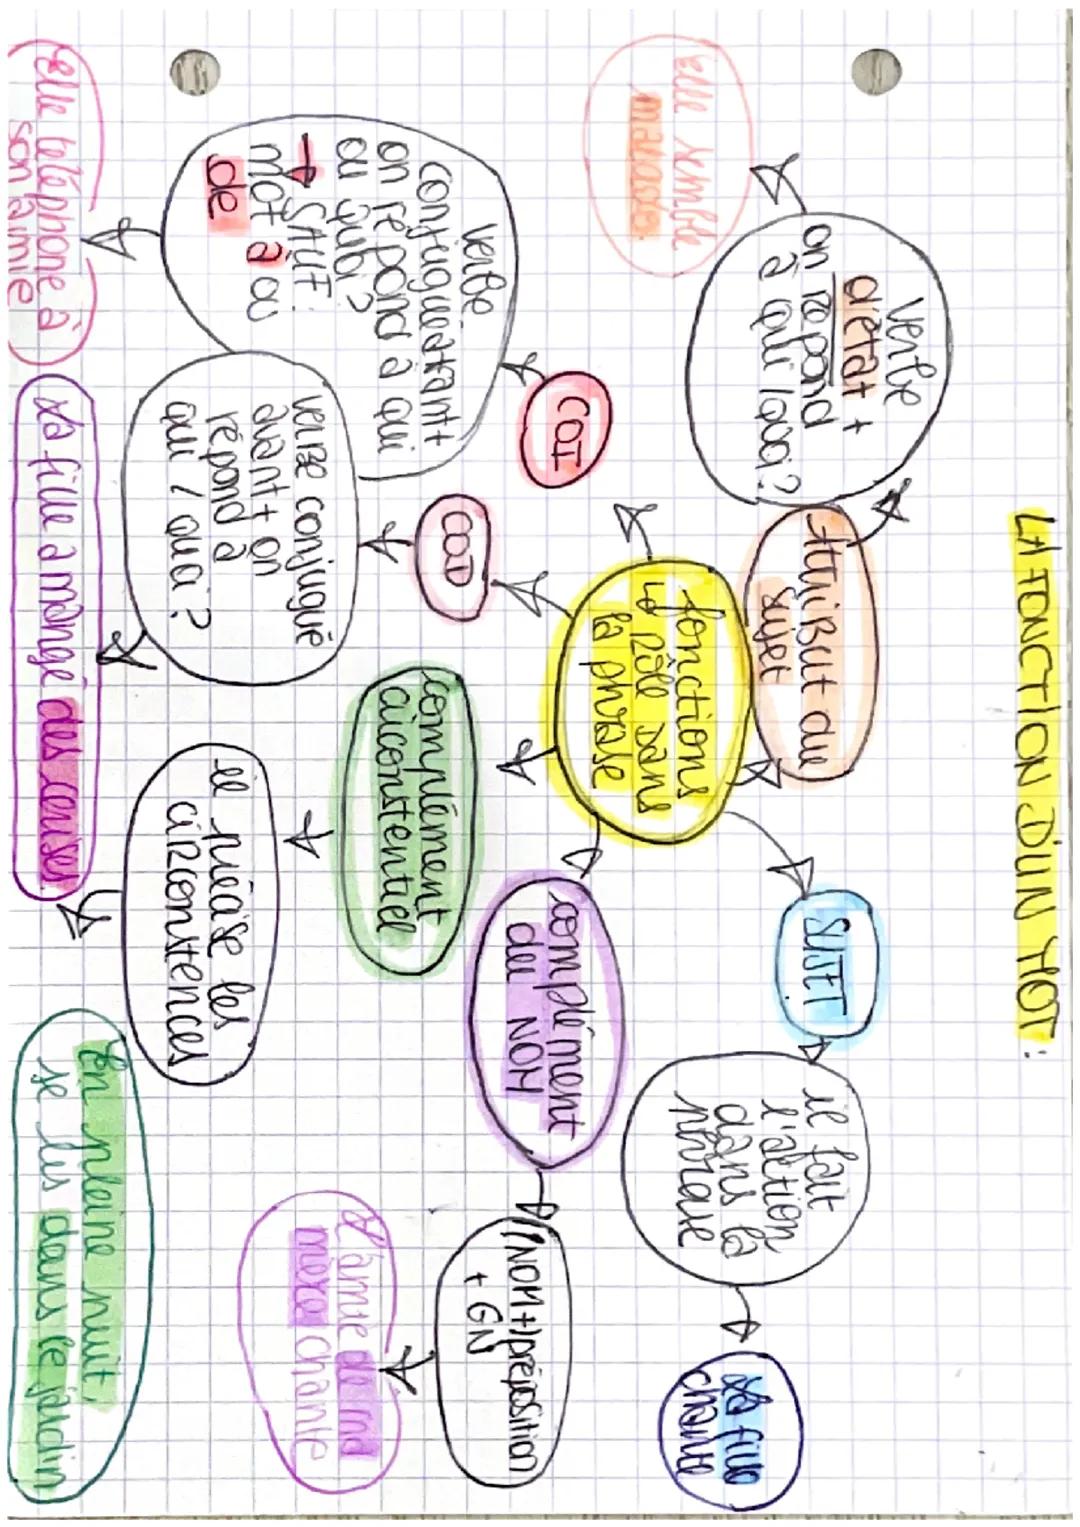 LA FONCTION D'UN MOT :
fonctions
le rôle dans
la phrase
SUJET
il fait
l'action
dans la
phrase
La fille
chante
Attribut du
sujet
verbe
d'état +
on répond
à qui / quoi ?
Elle semble
COI
verbe
conjugué avant +
on répond à qui
ou quoi ?
→ SAUF :
mot à ou
de
Elle téléphone à
son amie
COD
verbe conjugué
avant + on
répond à
qui / quoi ?
La fille a mangé des cerises
complément
circonstentiel
il précise les
circonstences
En pleine nuit,
je lis dans le jardin
complément
du NOM
(NOM+)préposition
+ GN
L'amie de ma
mère chante